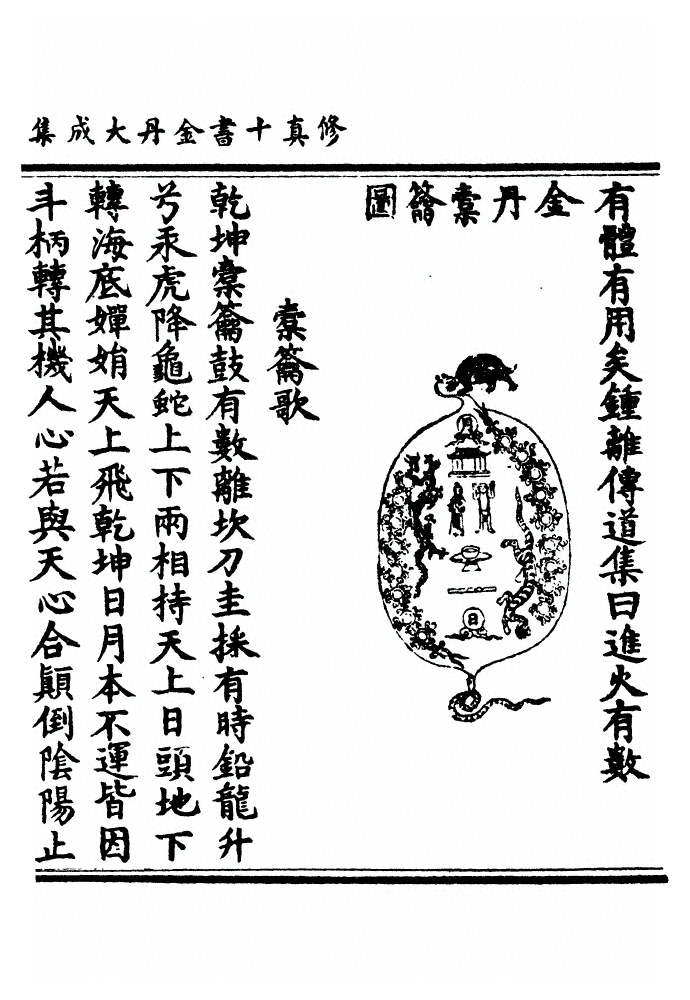 修真十書金丹大成集
有體有用矣鍾離傳道集曰進火有數
金丹橐籥圖
月
日
橐籥歌
乾坤橐籥鼓有數離坎刀圭採有時鉛龍升
兮汞虎降龜蛇上下兩相持天上日頭地下
轉海底嬋娟天上飛乾坤日月本不運皆因
斗柄轉其機人心若與天心合顛倒陰陽止